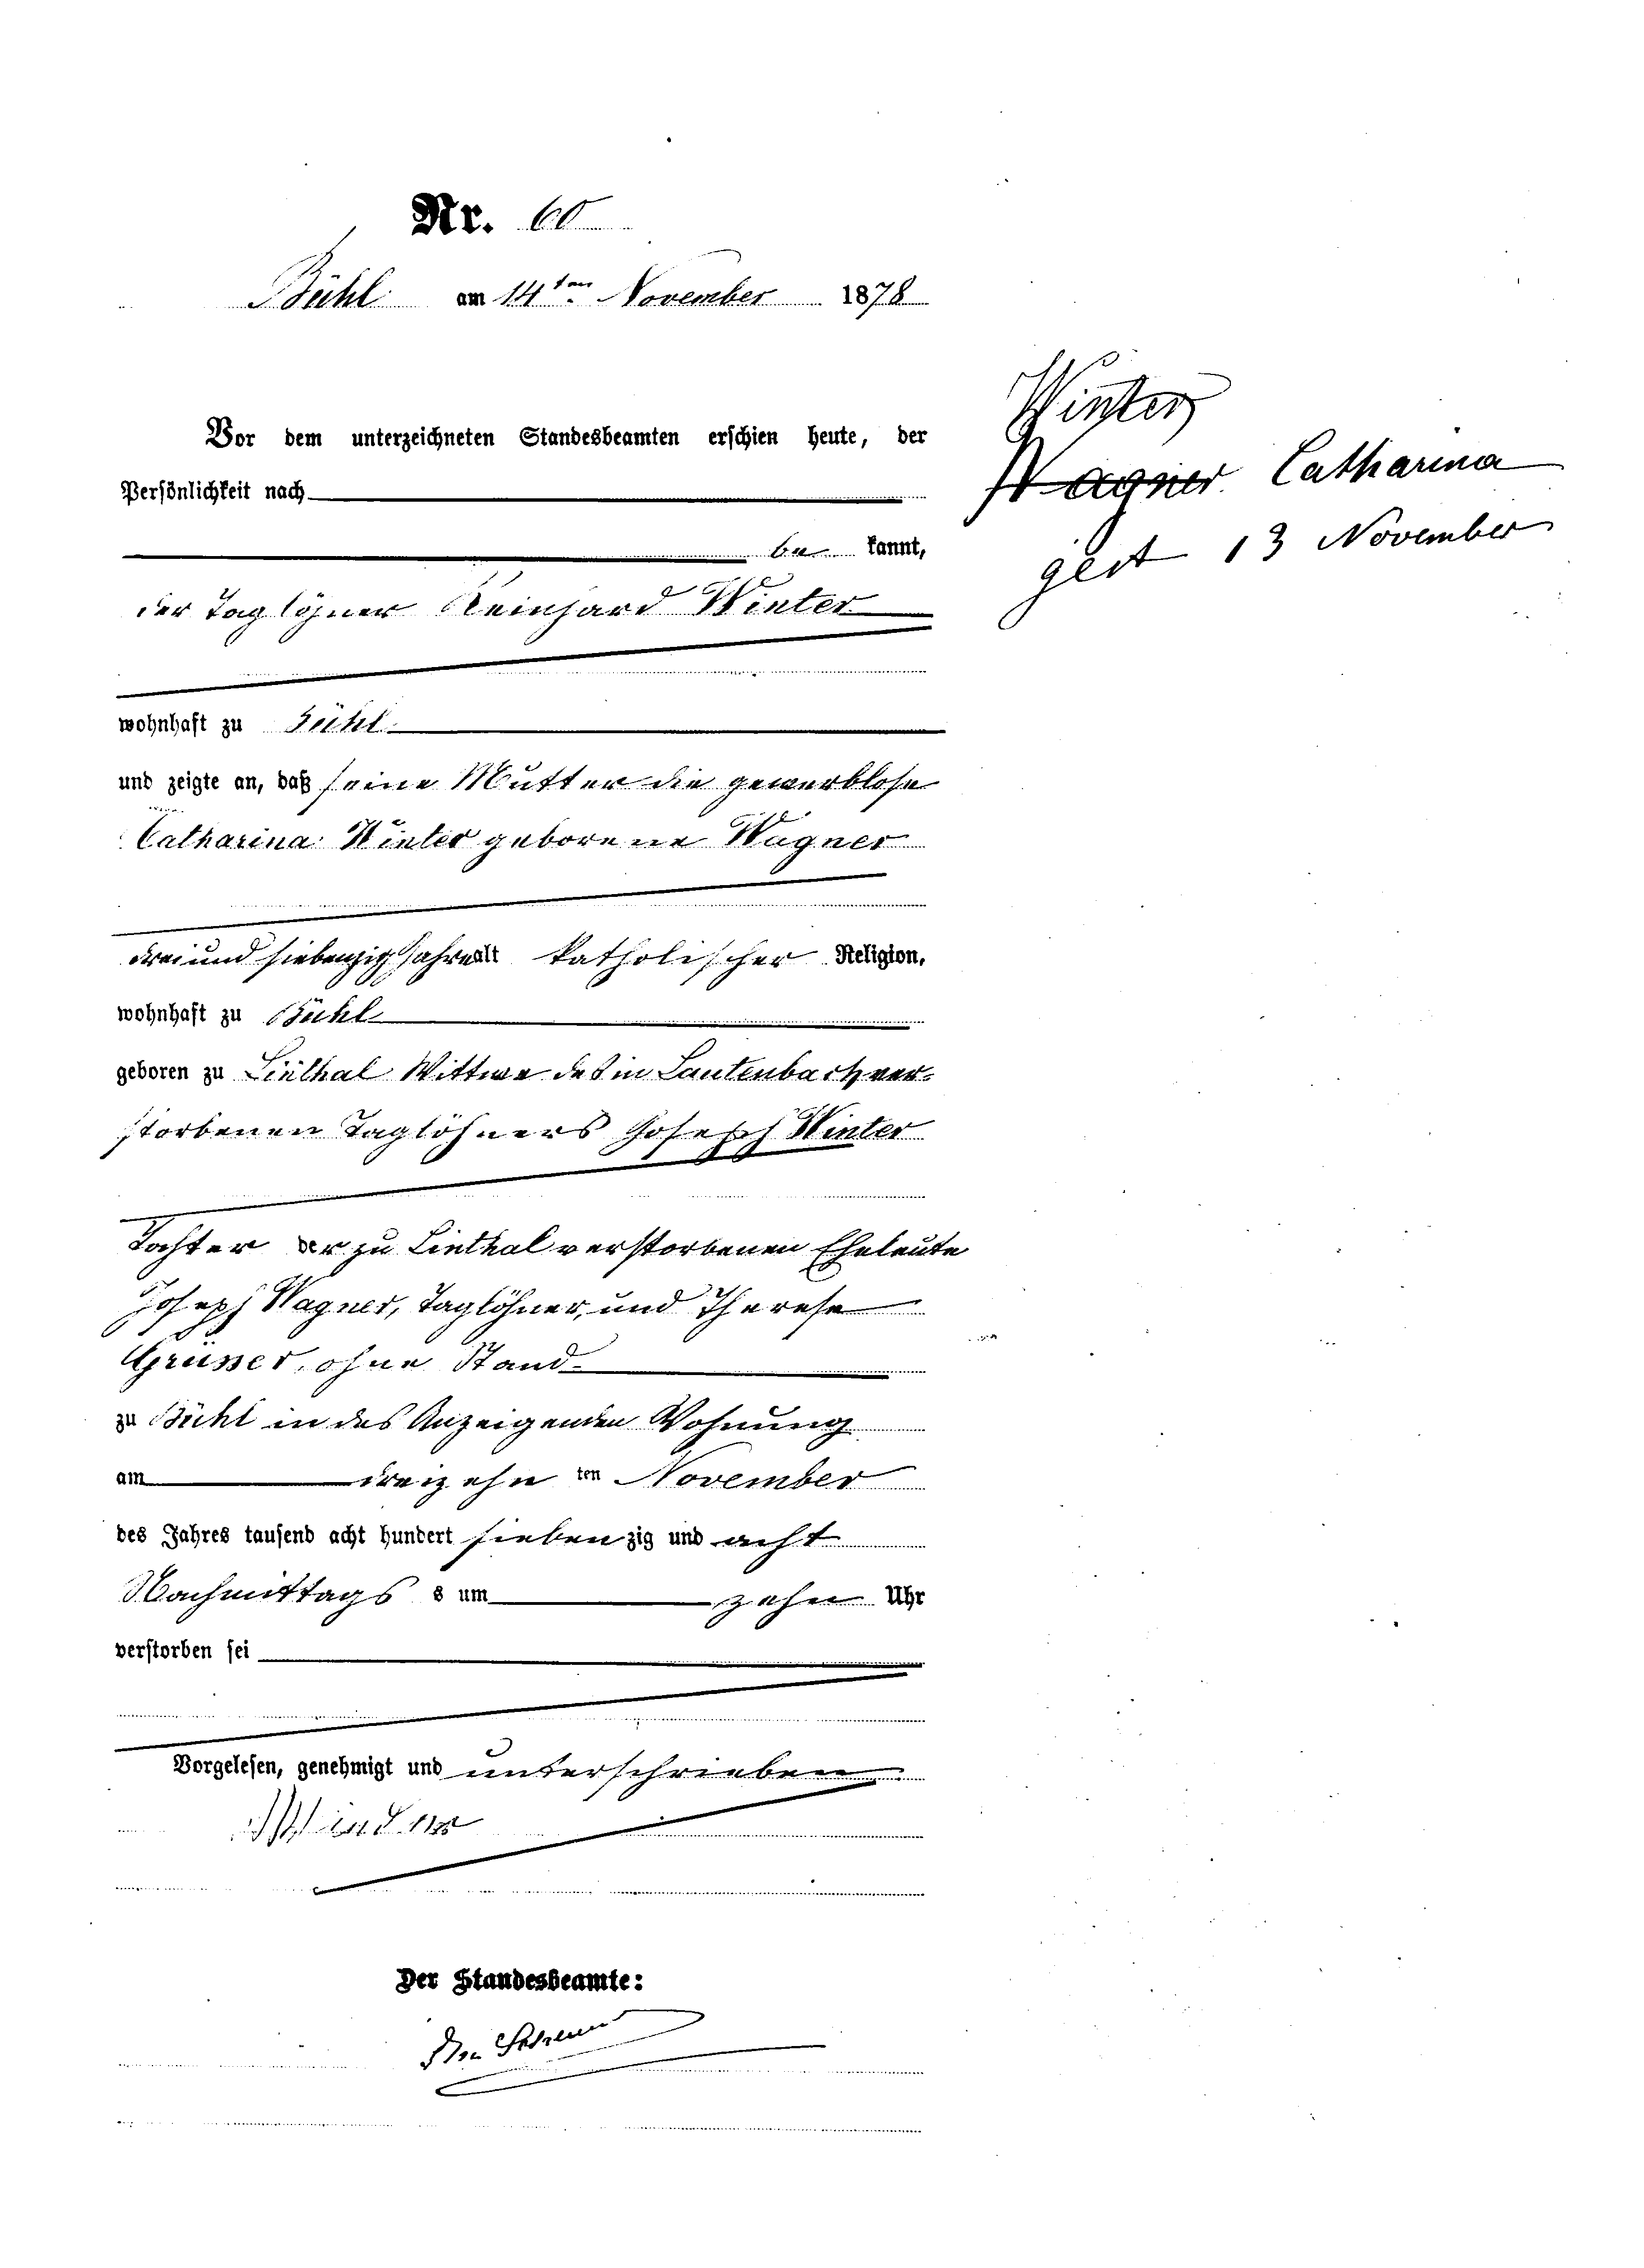 Nr. 60
Bühl am 14ten November 1878
Vor dem unterzeichneten Standesbeamten erschien heute, der
Persönlichkeit nach
be kannt,
der Taglöhner Reinhard Winter
wohnhaft zu Bühl
und zeigte an, daß seine Mutter die gewerblose
Catharina Winter geborene Wagner
dreiund siebenzig Jahre alt katholischer Religion,
wohnhaft zu Bühl
geboren zu Linthal Wittwe des in Lautenbach ver-
storbenen Taglöhners Joseph Winter
Tochter der zu Linthal verstorbenen Eheleute
Joseph Wagner, Taglöhner, und Therese
Grüsser, ohne Stand
zu Bühl in des Anzeigenden Wohnung
am dreizehn ten November
des Jahres tausend acht hundert sieben zig und acht
Nachmittags s um zehn Uhr
verstorben sei
Vorgelesen, genehmigt und unterschrieben
Der Standesbeamte:
Winter
Wagner Catharina
gest 13 November